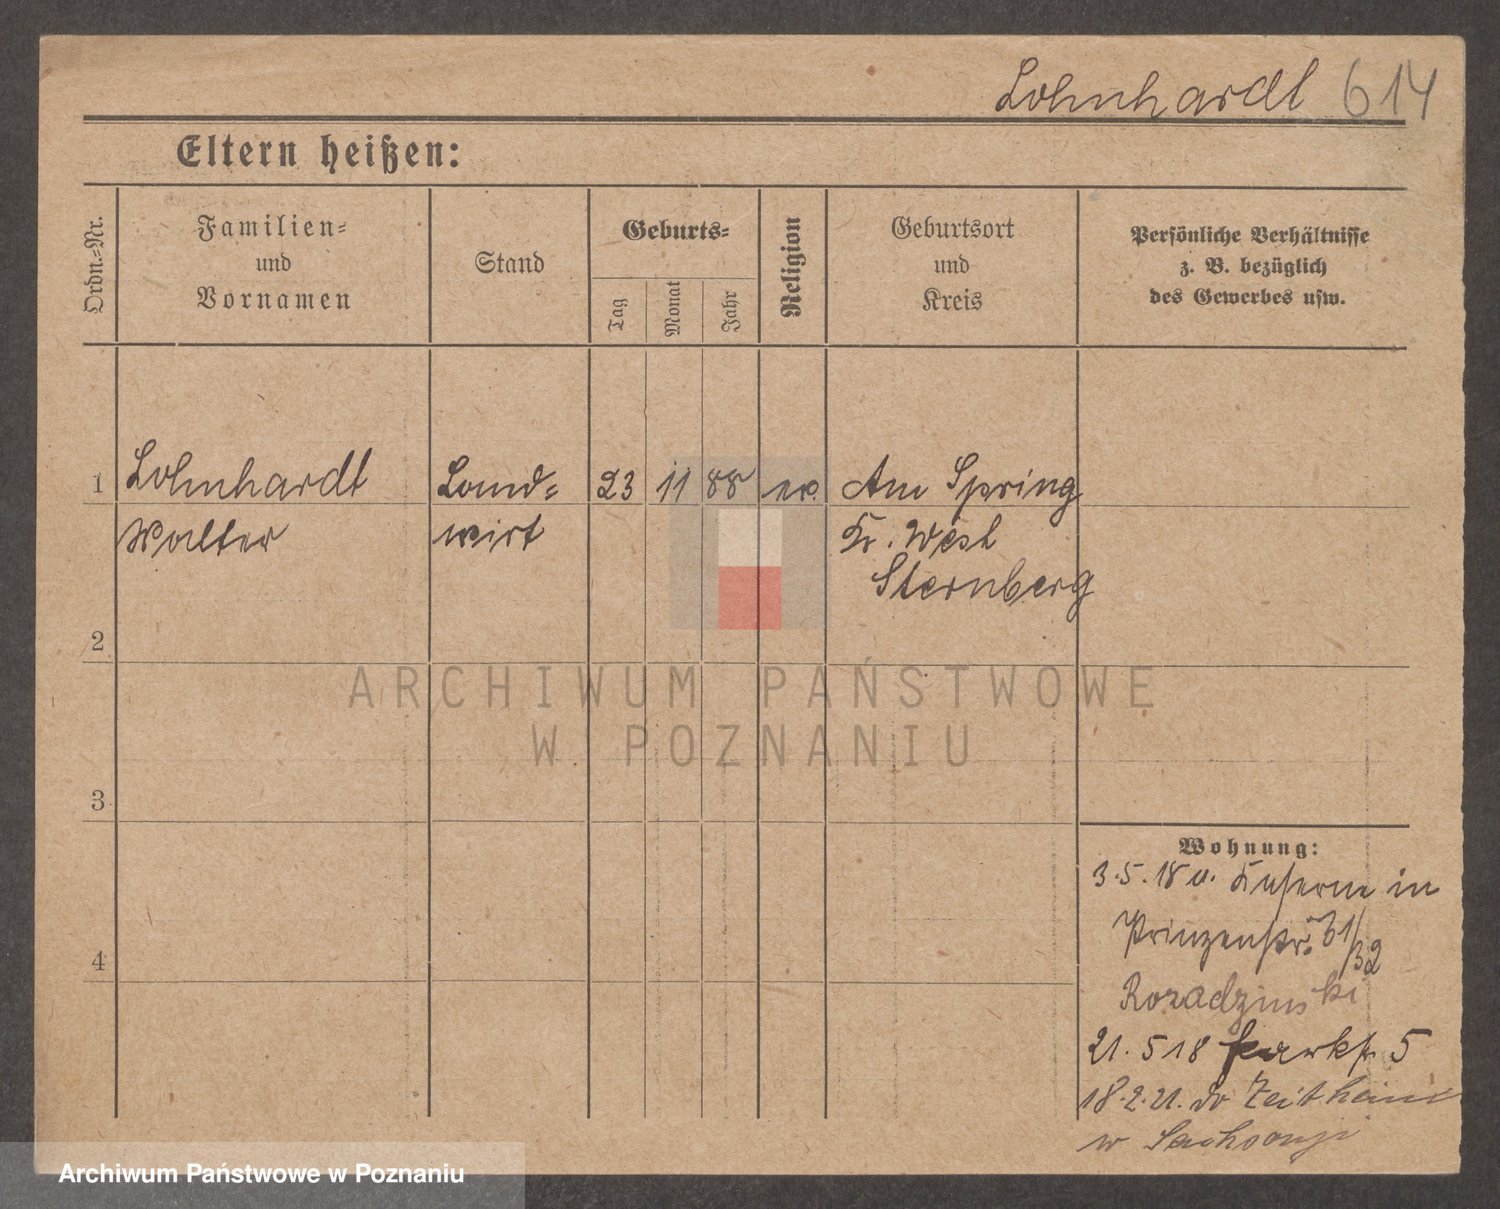 Lohnhardt 614
Eltern heißen:
Ordn.-Nr.
Familien-
und
Vornamen
Stand
Geburts-
Tag
Monat
Jahr
Religion
Geburtsort
und
Kreis
Persönliche Verhältnisse
z. B. bezüglich
des Gewerbes usw.
1 Lohnhardt Land- 23 11 88 ev. Am Spring
Walter wirt Kr. West
Sternberg
2
3
4
Wohnung:
3.5.18 v. Kaserne in
Prinzenstr. 31/32
Rozadzinski
21. 5 18 Parkstr 5
18.2.21. do Zeithain
w Sachsonji
ARCHIWUM PAŃSTWOWE
W POZNANIU
Archiwum Państwowe w Poznaniu